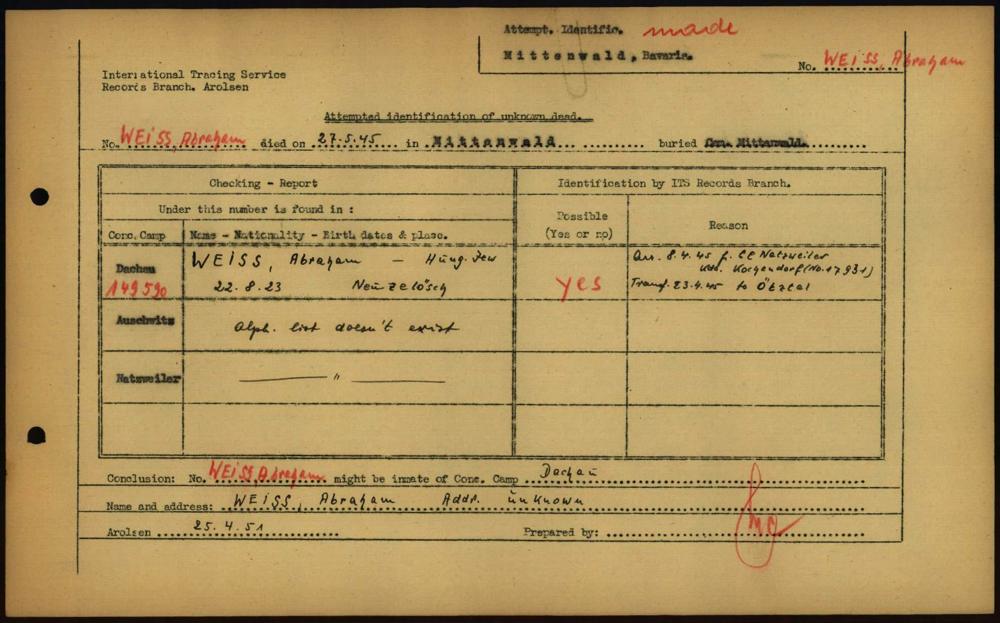 Attempt. Identific. made
Mittenwald, Bavaria.
No. WEISS, Abraham
International Tracing Service
Records Branch. Arolsen
Attempted identification of unknown dead.
No. WEISS, Abraham died on 27.5.45 in Mittenwald buried Cem. Mittenwald.
Checking - Report
Identification by ITS Records Branch.
Under this number is found in :
Possible
(Yes or no)
Reason
Conc. Camp
Name - Nationality - Birth dates & place.
Dachau
149590
WEISS, Abraham - Hung. Jew
22.8.23 Neuzelösch
yes
Arr. 8.4.45 f. CC Natzweiler
Kdo. Kochendorf (No. 17931)
Transf. 23.4.45 to Ötztal
Auschwitz
Alph. list doesn't exist
Natzweiler
— " —
Conclusion: No. WEISS, Abraham might be inmate of Conc. Camp Dachau
Name and address: WEISS, Abraham Addr. unknown
Arolsen 25.4.51
Prepared by: